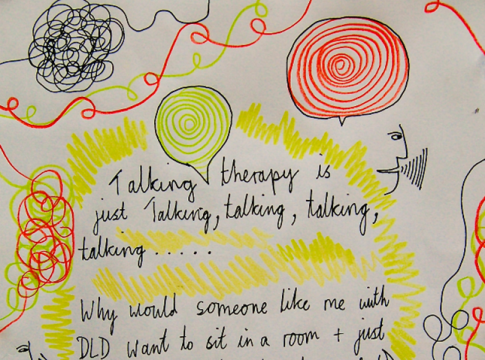 Talking therapy is
just Talking, talking, talking,
talking.....
Why would someone like me with
DLD want to sit in a room + just